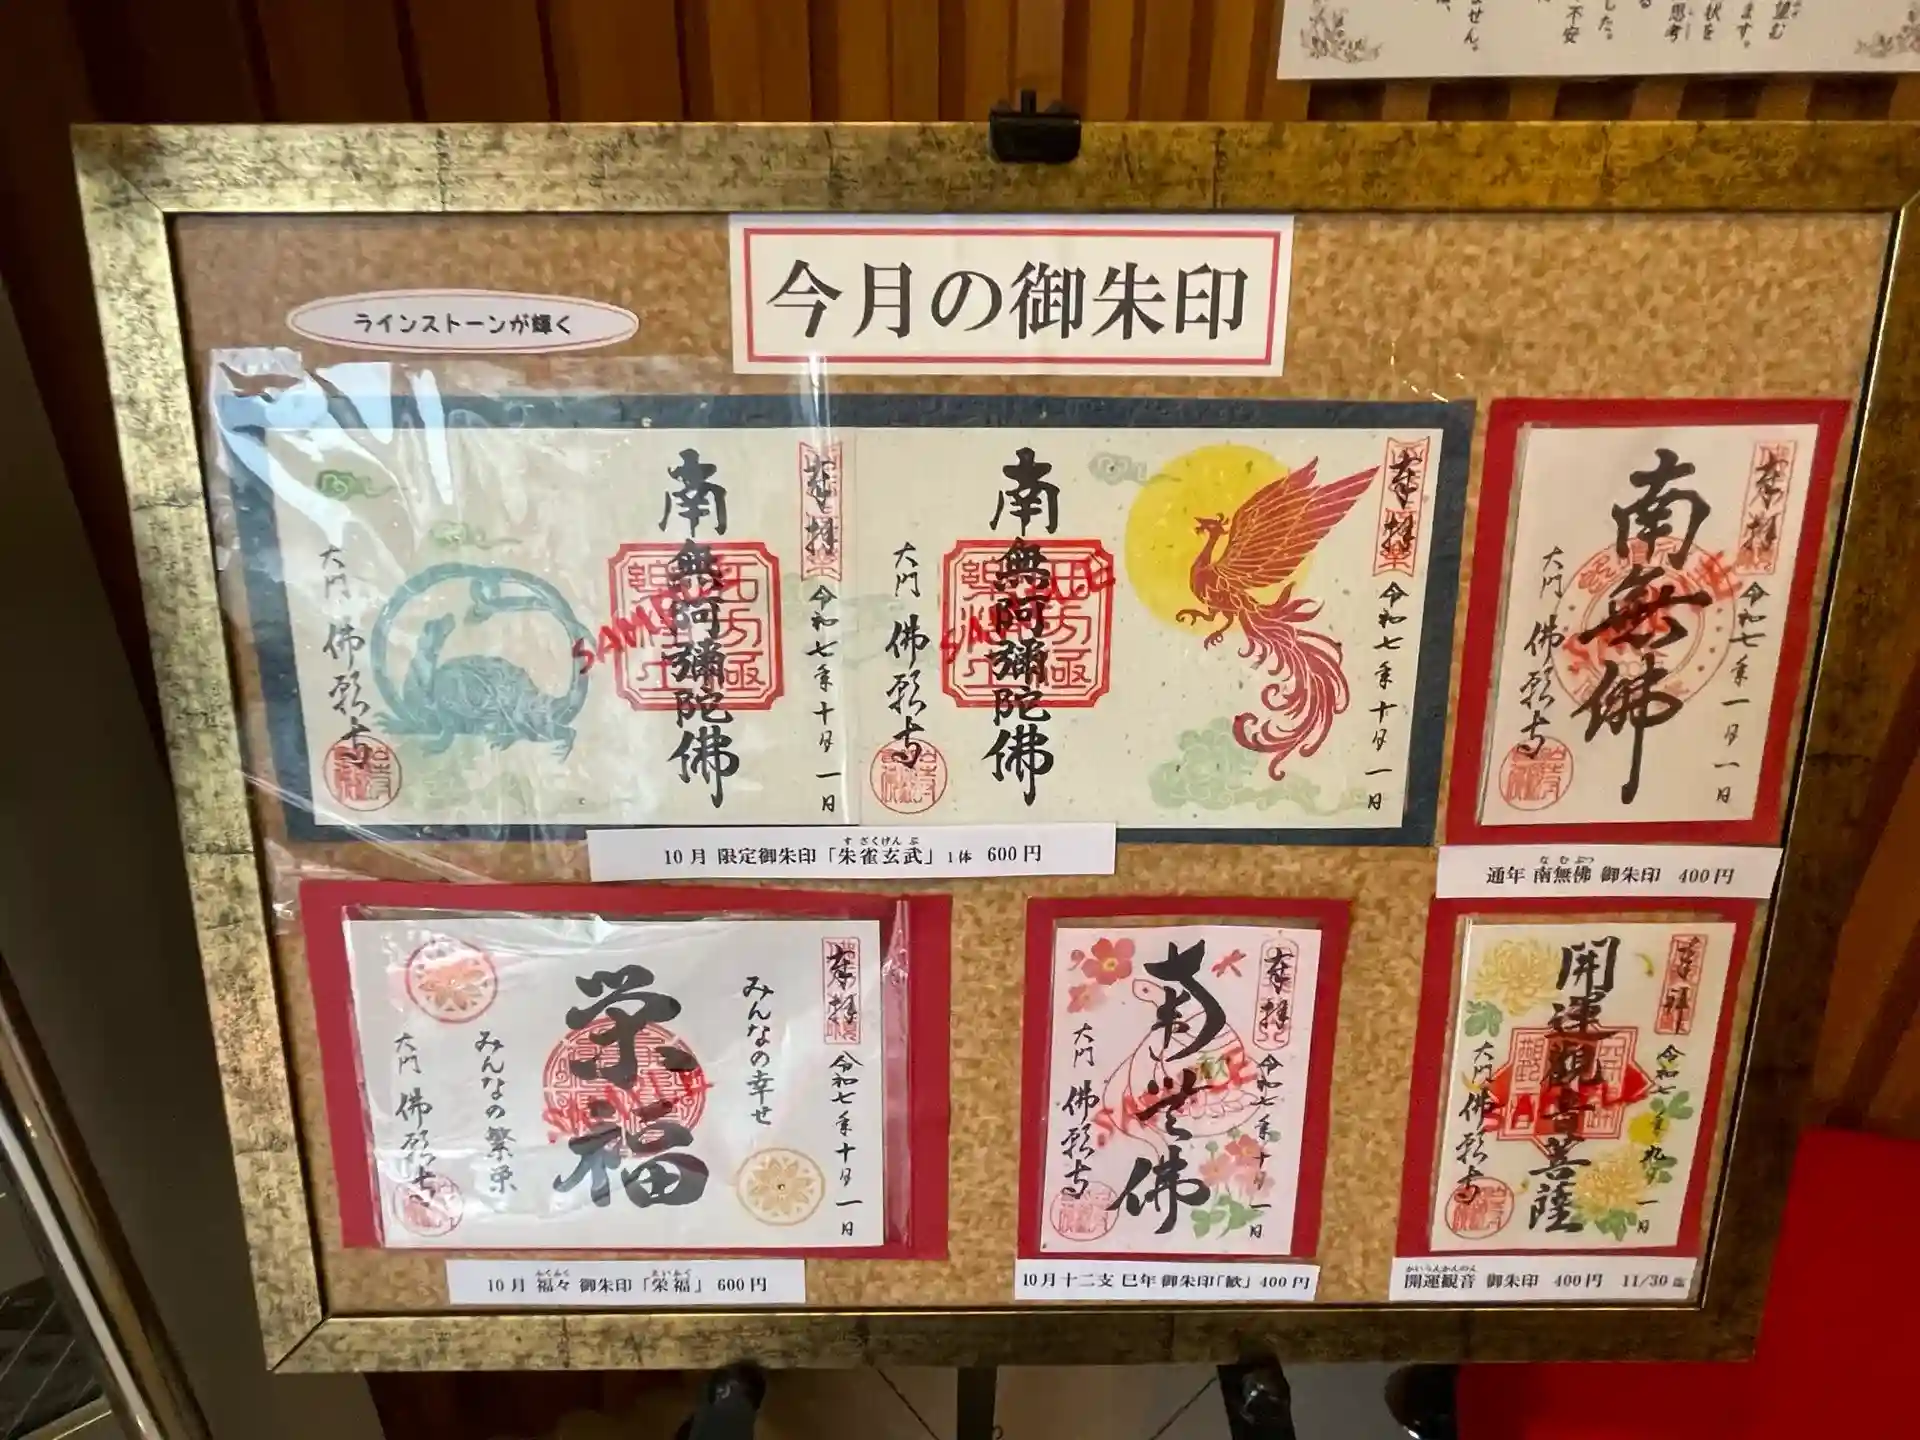 今月の御朱印
ラインストーンが輝く
奉拝
令和七年十月一日
南無阿彌陀佛
SAMPLE
大門
佛願寺
奉拝
令和七年十月一日
南無阿彌陀佛
大門
佛願寺
すざくげんぶ
10月 限定御朱印「朱雀玄武」1体 600円
奉拝
令和七年一月一日
南無佛
大門
佛願寺
なむぶつ
通年 南無佛 御朱印 400円
奉拝
令和七年十月一日
みんなの幸せ
栄福
みんなの繁栄
大門
佛願寺
ふくふく えいふく
10月 福々 御朱印「栄福」 600円
奉拝
令和七年十月一日
南無佛
大門
佛願寺
10月十二支 巳年 御朱印「歓」400円
奉拝
令和七年九月一日
開運観音菩薩
大門
佛願寺
かいうんかんのん
開運観音 御朱印 400円 11/30迄